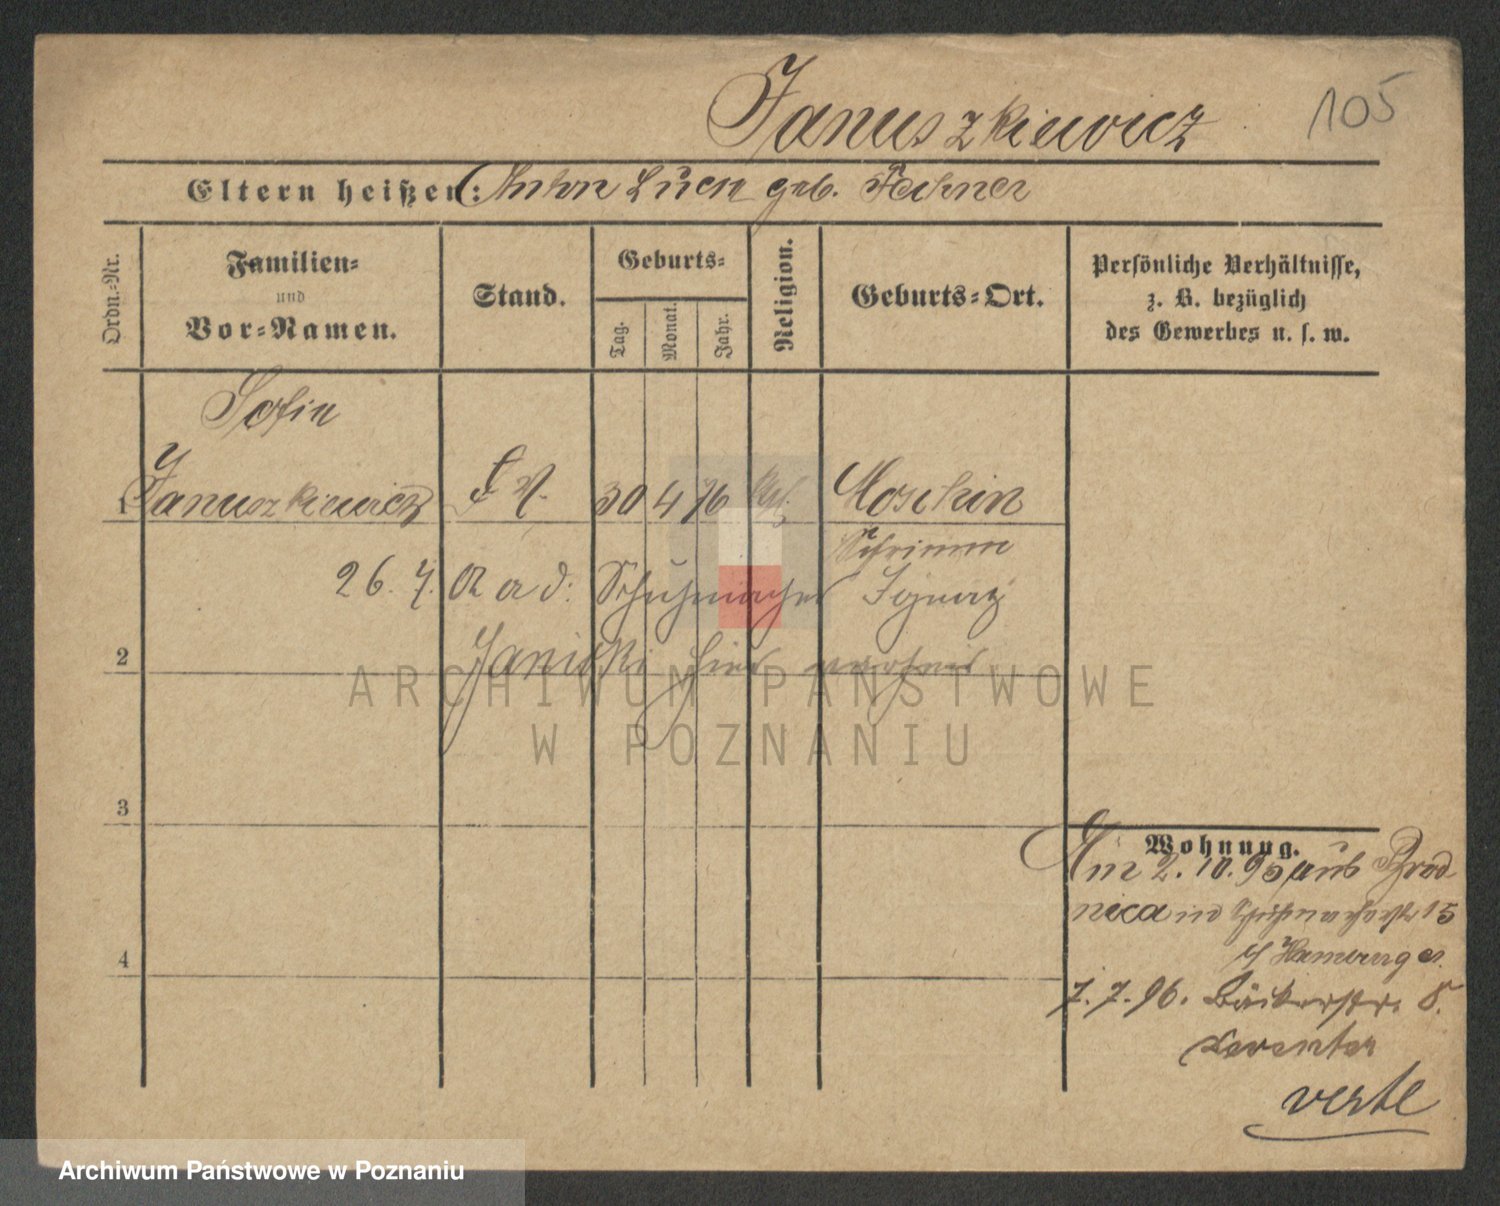 Januszkiewicz
105
Eltern heißen: Anton Lucie geb. Fechner
Ordn.-Nr.
Familien-
und
Vor-Namen.
Stand.
Geburts-
Tag.
Monat.
Jahr.
Religion.
Geburts-Ort.
Persönliche Verhältnisse,
z. B. bezüglich
des Gewerbes u. s. w.
Sofie
1 Januszkiewicz 30 4 76 kth. Moschin
Schrimm
26. 7. Schuhmacher Ignaz
2 Janicki hier
3
4
Wohnung.
Am 2.10.95 aus Brod
nica in 15
7.7.96. Bäckerstr. 8.
verte
ARCHIWUM PAŃSTWOWE
W POZNANIU
Archiwum Państwowe w Poznaniu